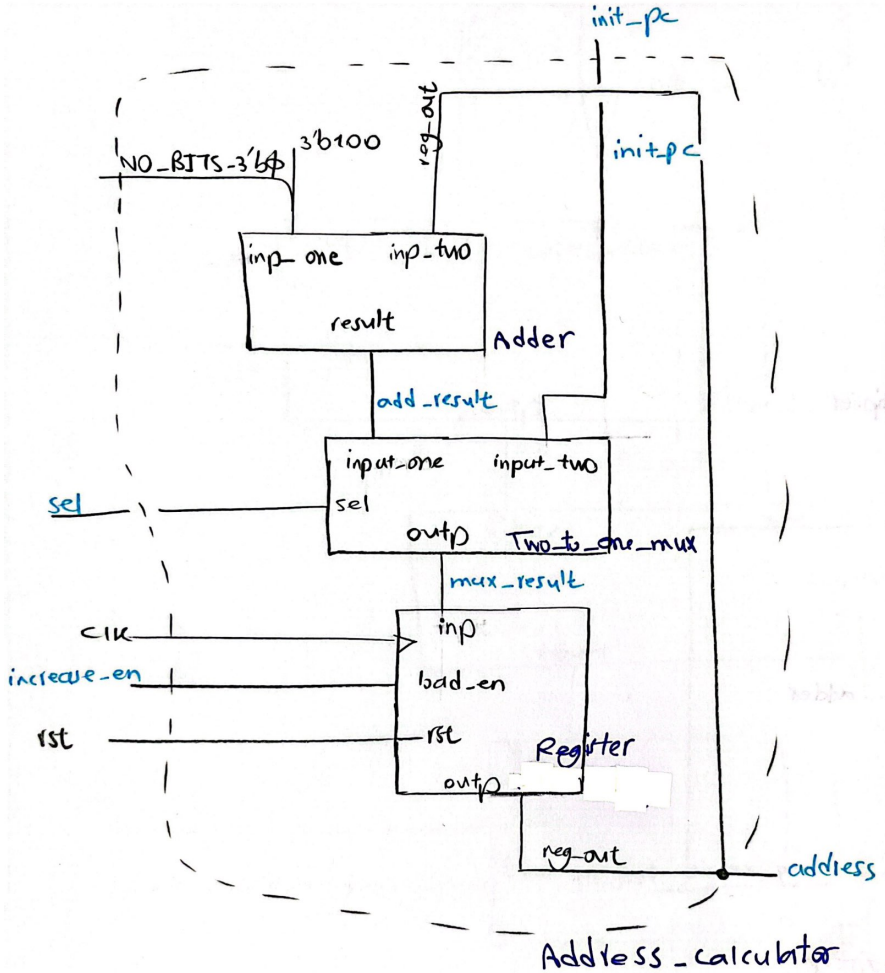 init_pc
reg_out
3'b100
init_pc
NO_BITS_3'b0
inp_one
inp_two
result
Adder
add_result
input_one
input_two
sel
sel
outp
Two_to_one_mux
mux_result
inp
clk
increase_en
load_en
rst
rst
Register
outp
reg_out
address
Address_calculator